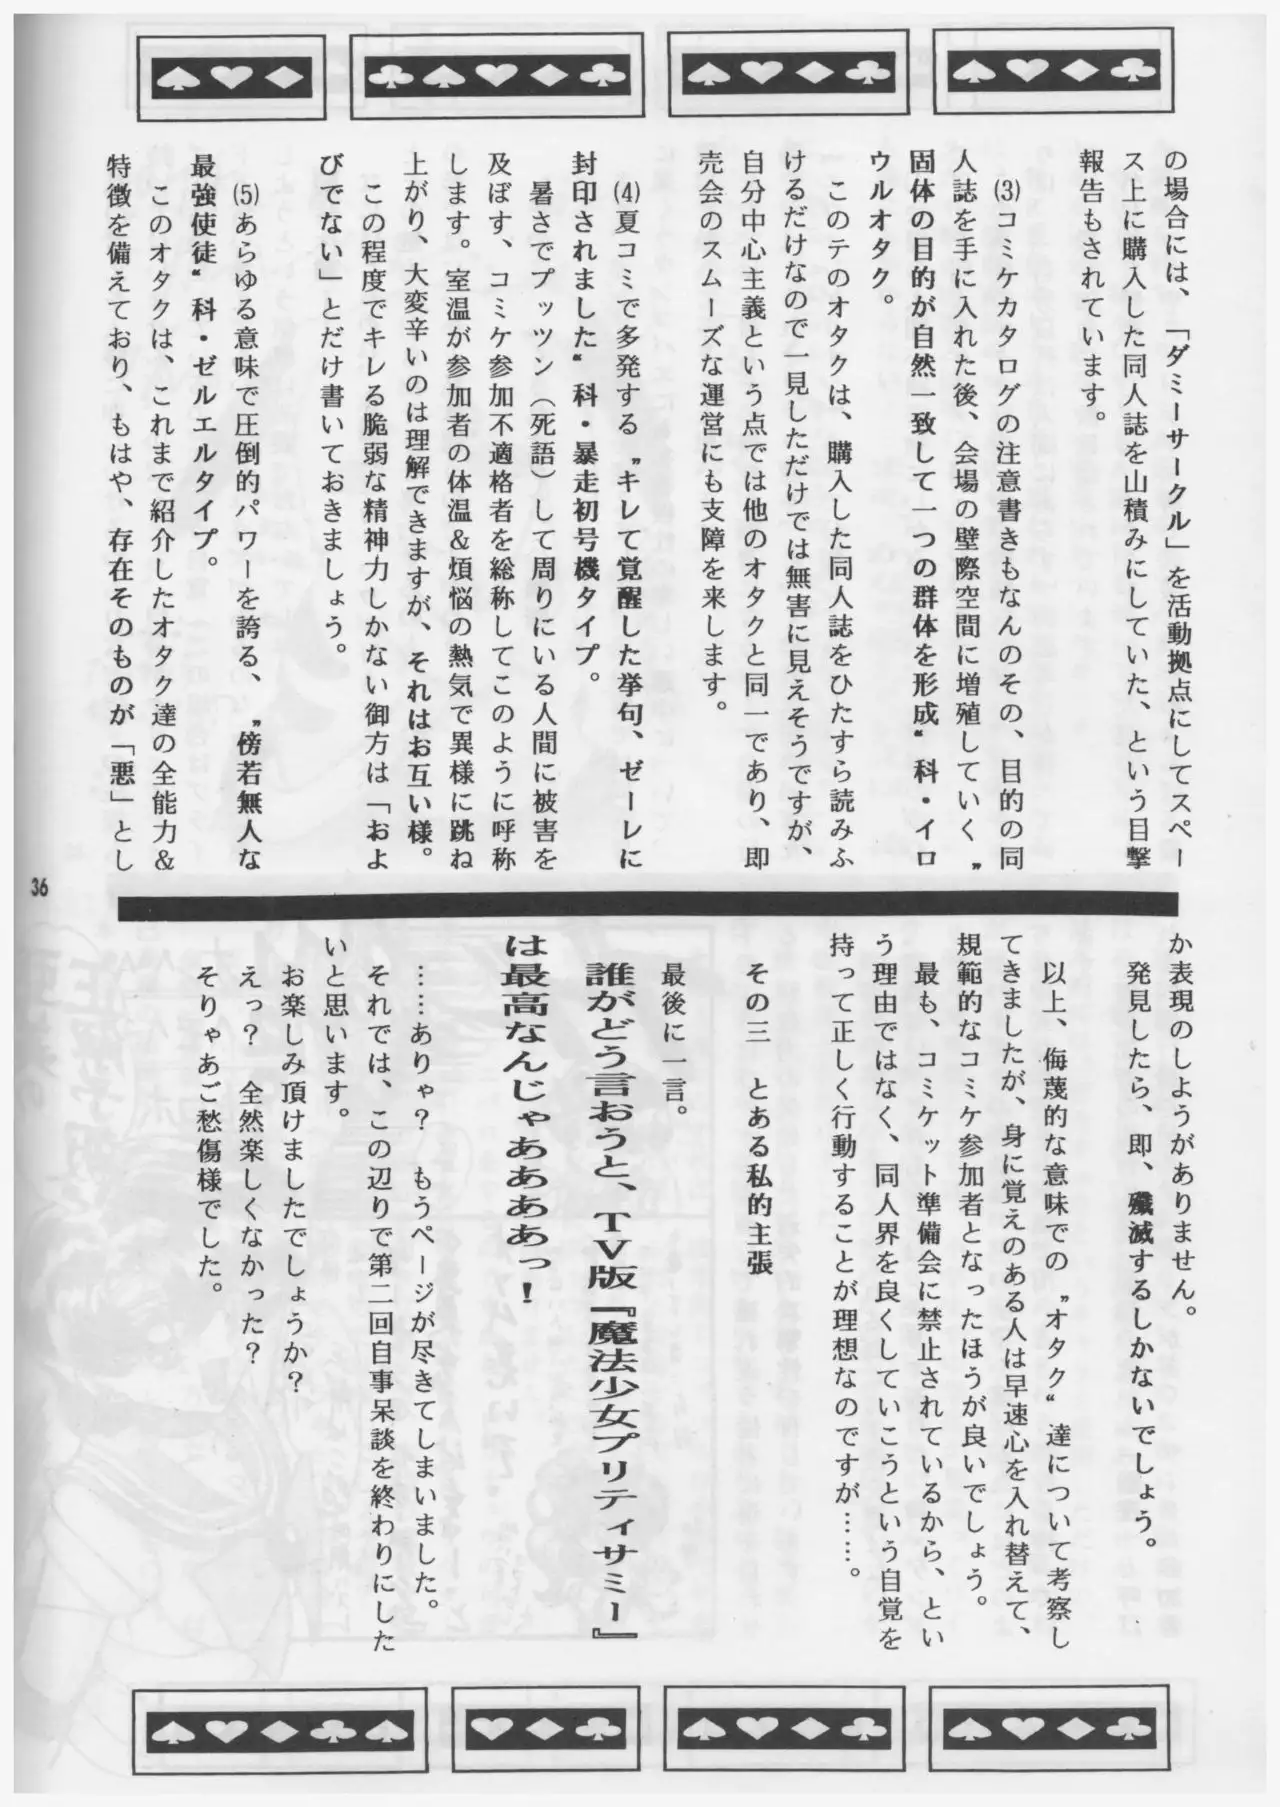 の場合には、「ダミーサークル」を活動拠点にしてスペー
ス上に購入した同人誌を山積みにしていた、という目撃
報告もされています。
(3)コミケカタログの注意書きもなんのその、目的の同
人誌を手に入れた後、会場の壁際空間に増殖していく〟
固体の目的が自然一致して一つの群体を形成〝科・イロ
ウルオタク。
このテのオタクは、購入した同人誌をひたすら読みふ
けるだけなので一見しただけでは無害に見えそうですが、
自分中心主義という点では他のオタクと同一であり、即
売会のスムーズな運営にも支障を来します。
(4)夏コミで多発する〟キレて覚醒した挙句、ゼーレに
封印されました〝科・暴走初号機タイプ。
暑さでプッツン（死語）して周りにいる人間に被害を
及ぼす、コミケ参加不適格者を総称してこのように呼称
します。室温が参加者の体温＆煩悩の熱気で異様に跳ね
上がり、大変辛いのは理解できますが、それはお互い様。
この程度でキレる脆弱な精神力しかない御方は「およ
びでない」とだけ書いておきましょう。
(5)あらゆる意味で圧倒的パワーを誇る、〟傍若無人な
最強使徒〝科・ゼルエルタイプ。
このオタクは、これまで紹介したオタク達の全能力＆
特徴を備えており、もはや、存在そのものが「悪」とし
か表現のしようがありません。
発見したら、即、殲滅するしかないでしょう。
以上、侮蔑的な意味での〟オタク〝達について考察し
てきましたが、身に覚えのある人は早速心を入れ替えて、
規範的なコミケ参加者となったほうが良いでしょう。
最も、コミケット準備会に禁止されているから、とい
う理由ではなく、同人界を良くしていこうという自覚を
持って正しく行動することが理想なのですが……。
その三　とある私的主張
最後に一言。
誰がどう言おうと、TV版『魔法少女プリティサミー』
は最高なんじゃああああっ！
……ありゃ？　もうページが尽きてしまいました。
それでは、この辺りで第二回自事呆談を終わりにした
いと思います。
お楽しみ頂けましたでしょうか？
えっ？　全然楽しくなかった？
そりゃあご愁傷様でした。
36